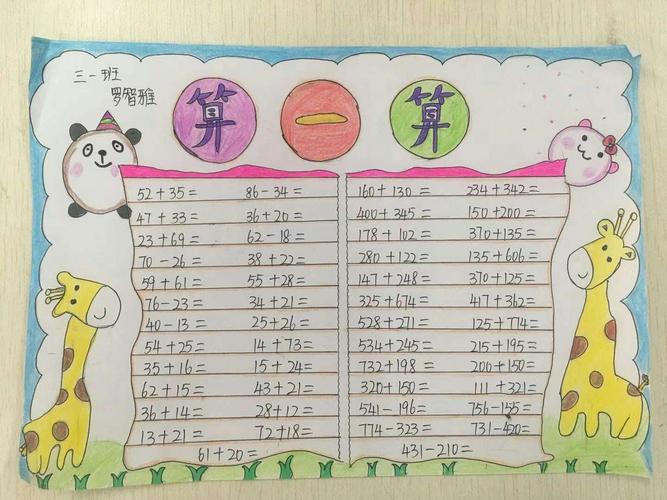 三一班
罗智雅
算一算
52+35= 86-34=
47+33= 36+20=
23+69= 62-18=
70-26= 38+22=
59+61= 55+28=
76-23= 34+21=
40-13= 25+26=
54+25= 14+73=
35+16= 15+24=
62+15= 43+21=
36+14= 28+12=
13+21= 72+18=
61+20=
160+130= 234+342=
400+345= 150+200=
178+102= 370+135=
280+122= 135+606=
147+248= 370+125=
325+674= 417+362=
528+271= 125+774=
534+245= 215+195=
732+198= 200+150=
320+150= 111+321=
541-196= 756-155=
774-323= 731-420=
431-210=